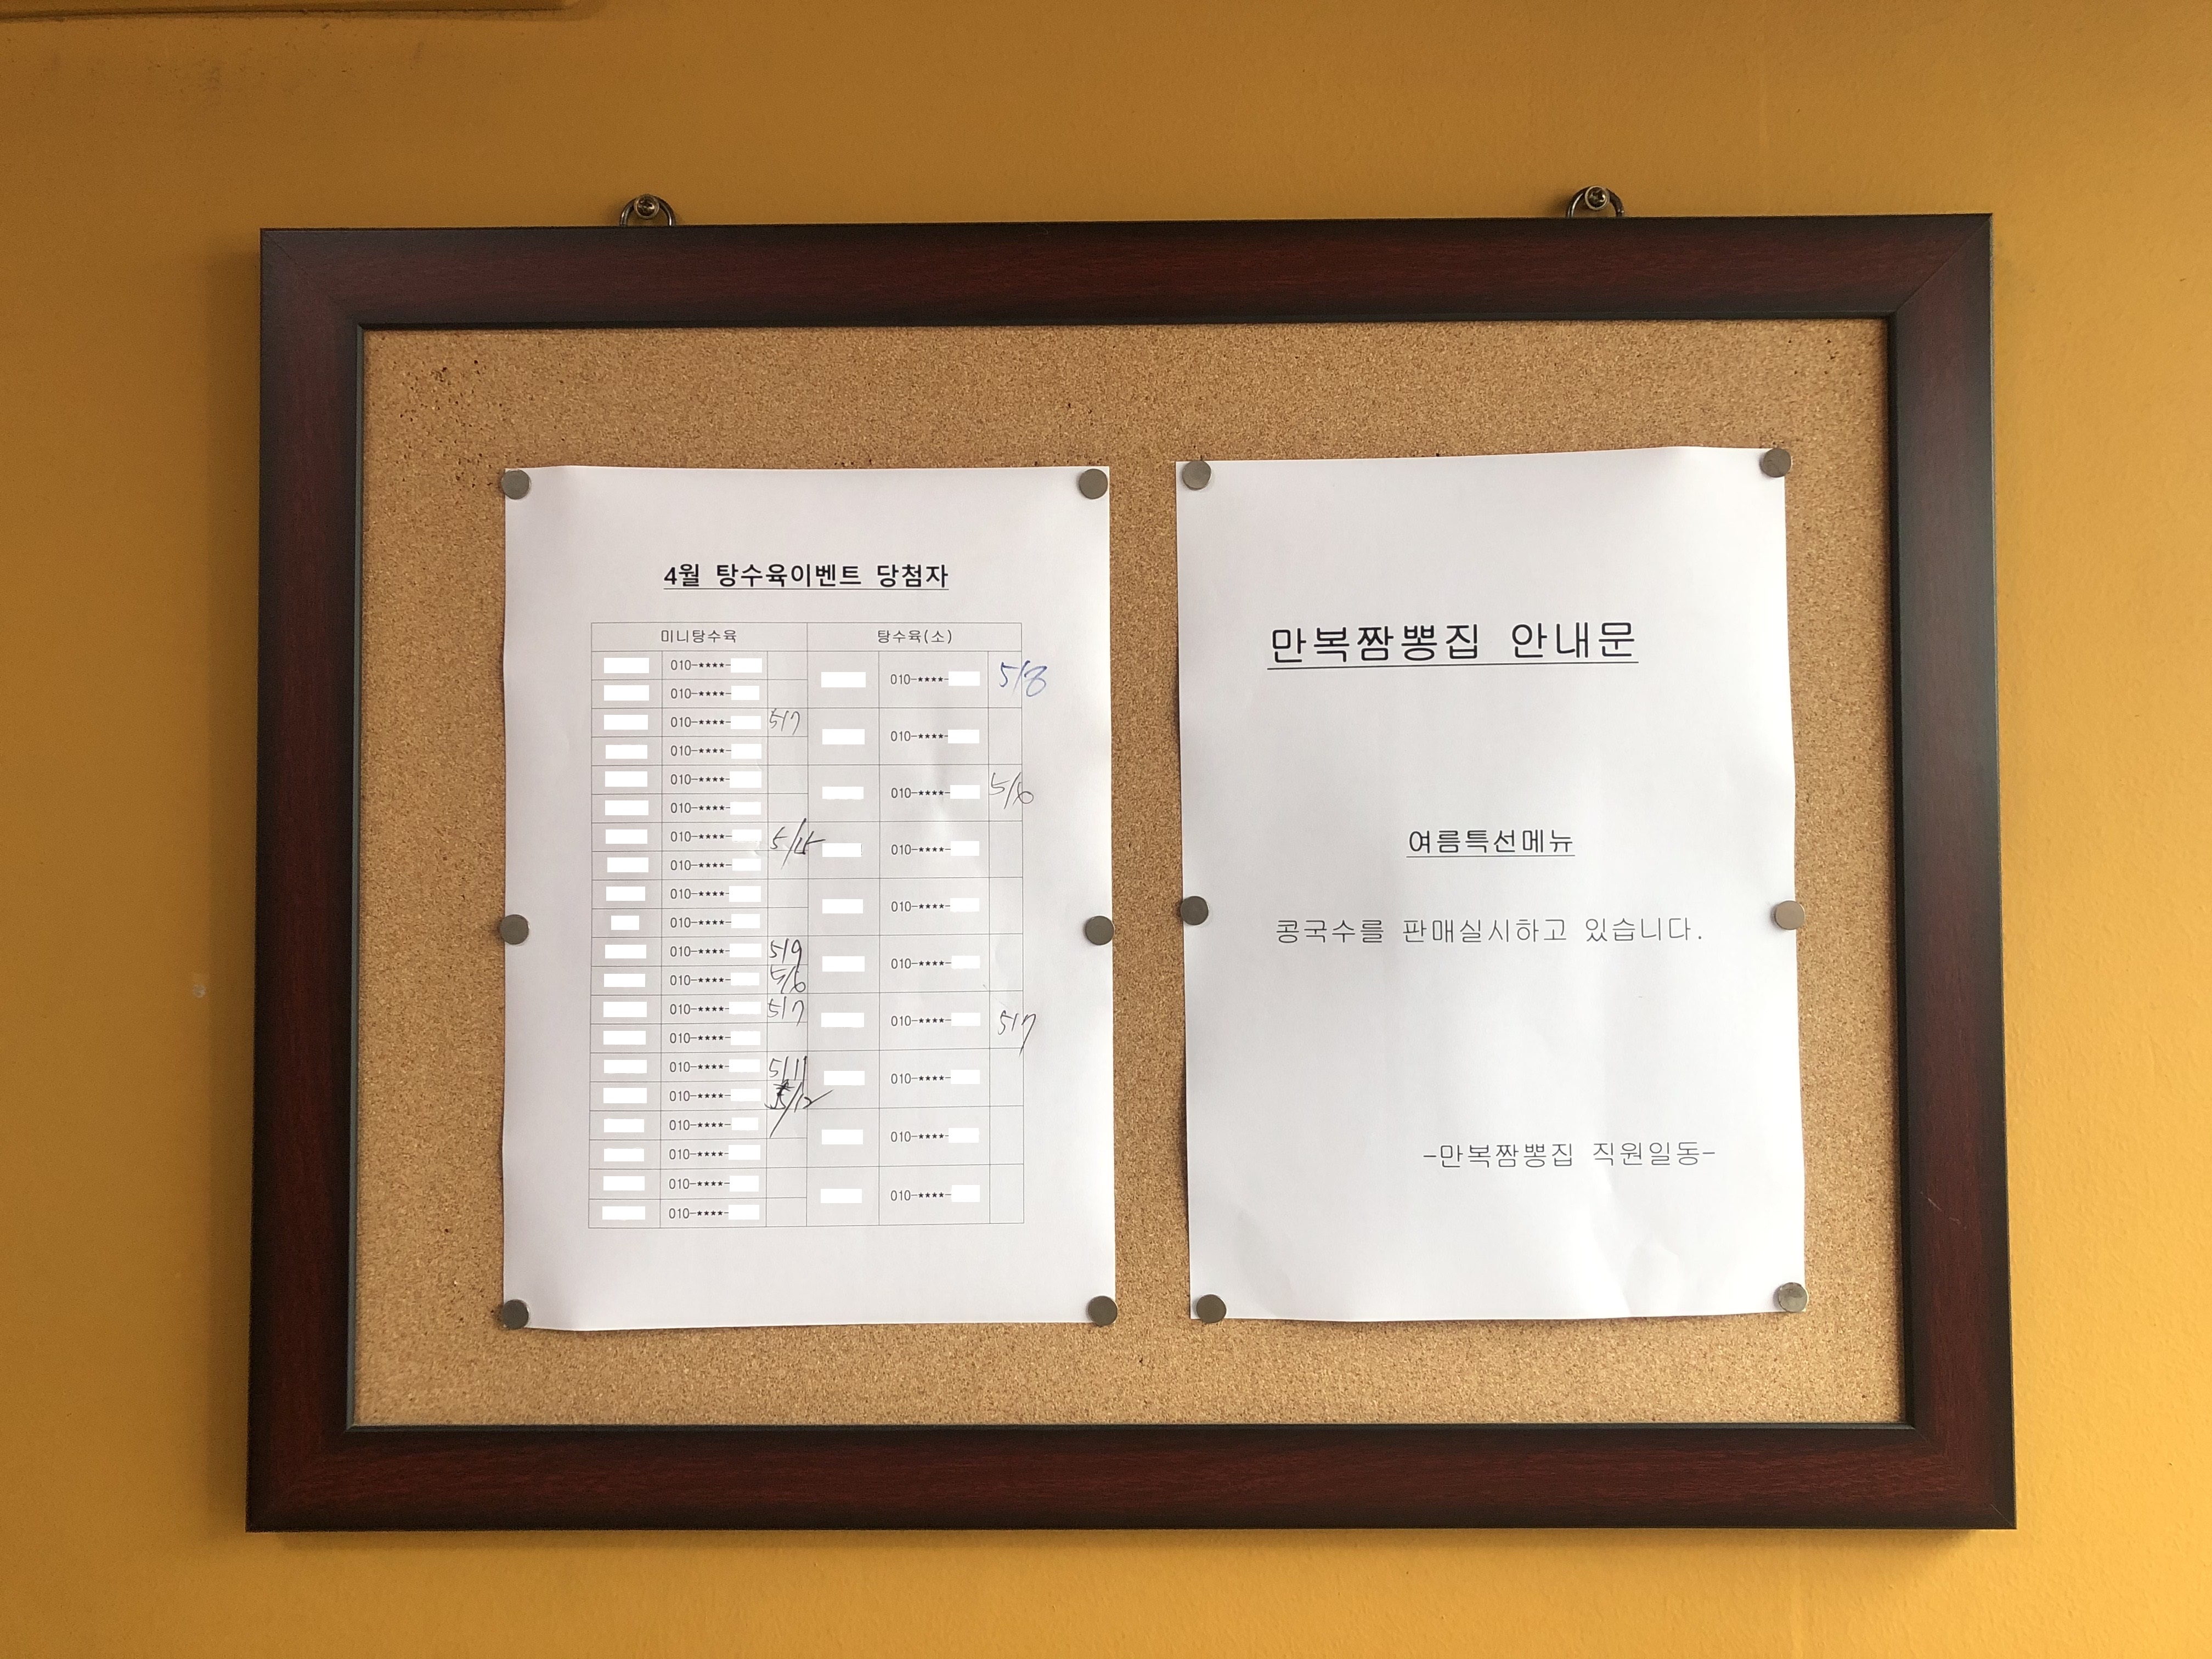 4월 탕수육이벤트 당첨자
미니탕수육 탕수육(소)
010-****-
010-****- 5/8
010-****-
010-****- 5/7
010-****-
010-****-
010-****-
010-****- 5/6
010-****-
010-****- 5/15
010-****-
010-****-
010-****-
010-****-
010-****-
010-****- 5/9
010-****-
010-****- 5/6
010-****- 5/7
010-****- 5/7
010-****-
010-****- 5/11
010-****-
010-****- 5/12
010-****-
010-****-
010-****-
010-****-
010-****-
010-****-
만복짬뽕집 안내문
여름특선메뉴
콩국수를 판매실시하고 있습니다.
-만복짬뽕집 직원일동-